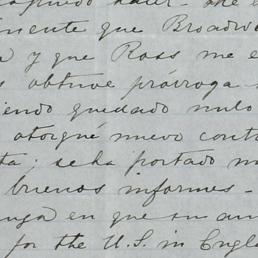 hacer - me e
niente que Broadw
y que Ross me e
obtuve prórroga
iendo quedado nulo
otorgué nuevo cont
ta; se ha portado m
buenos informes -
en que su am
for the U.S. in Engl